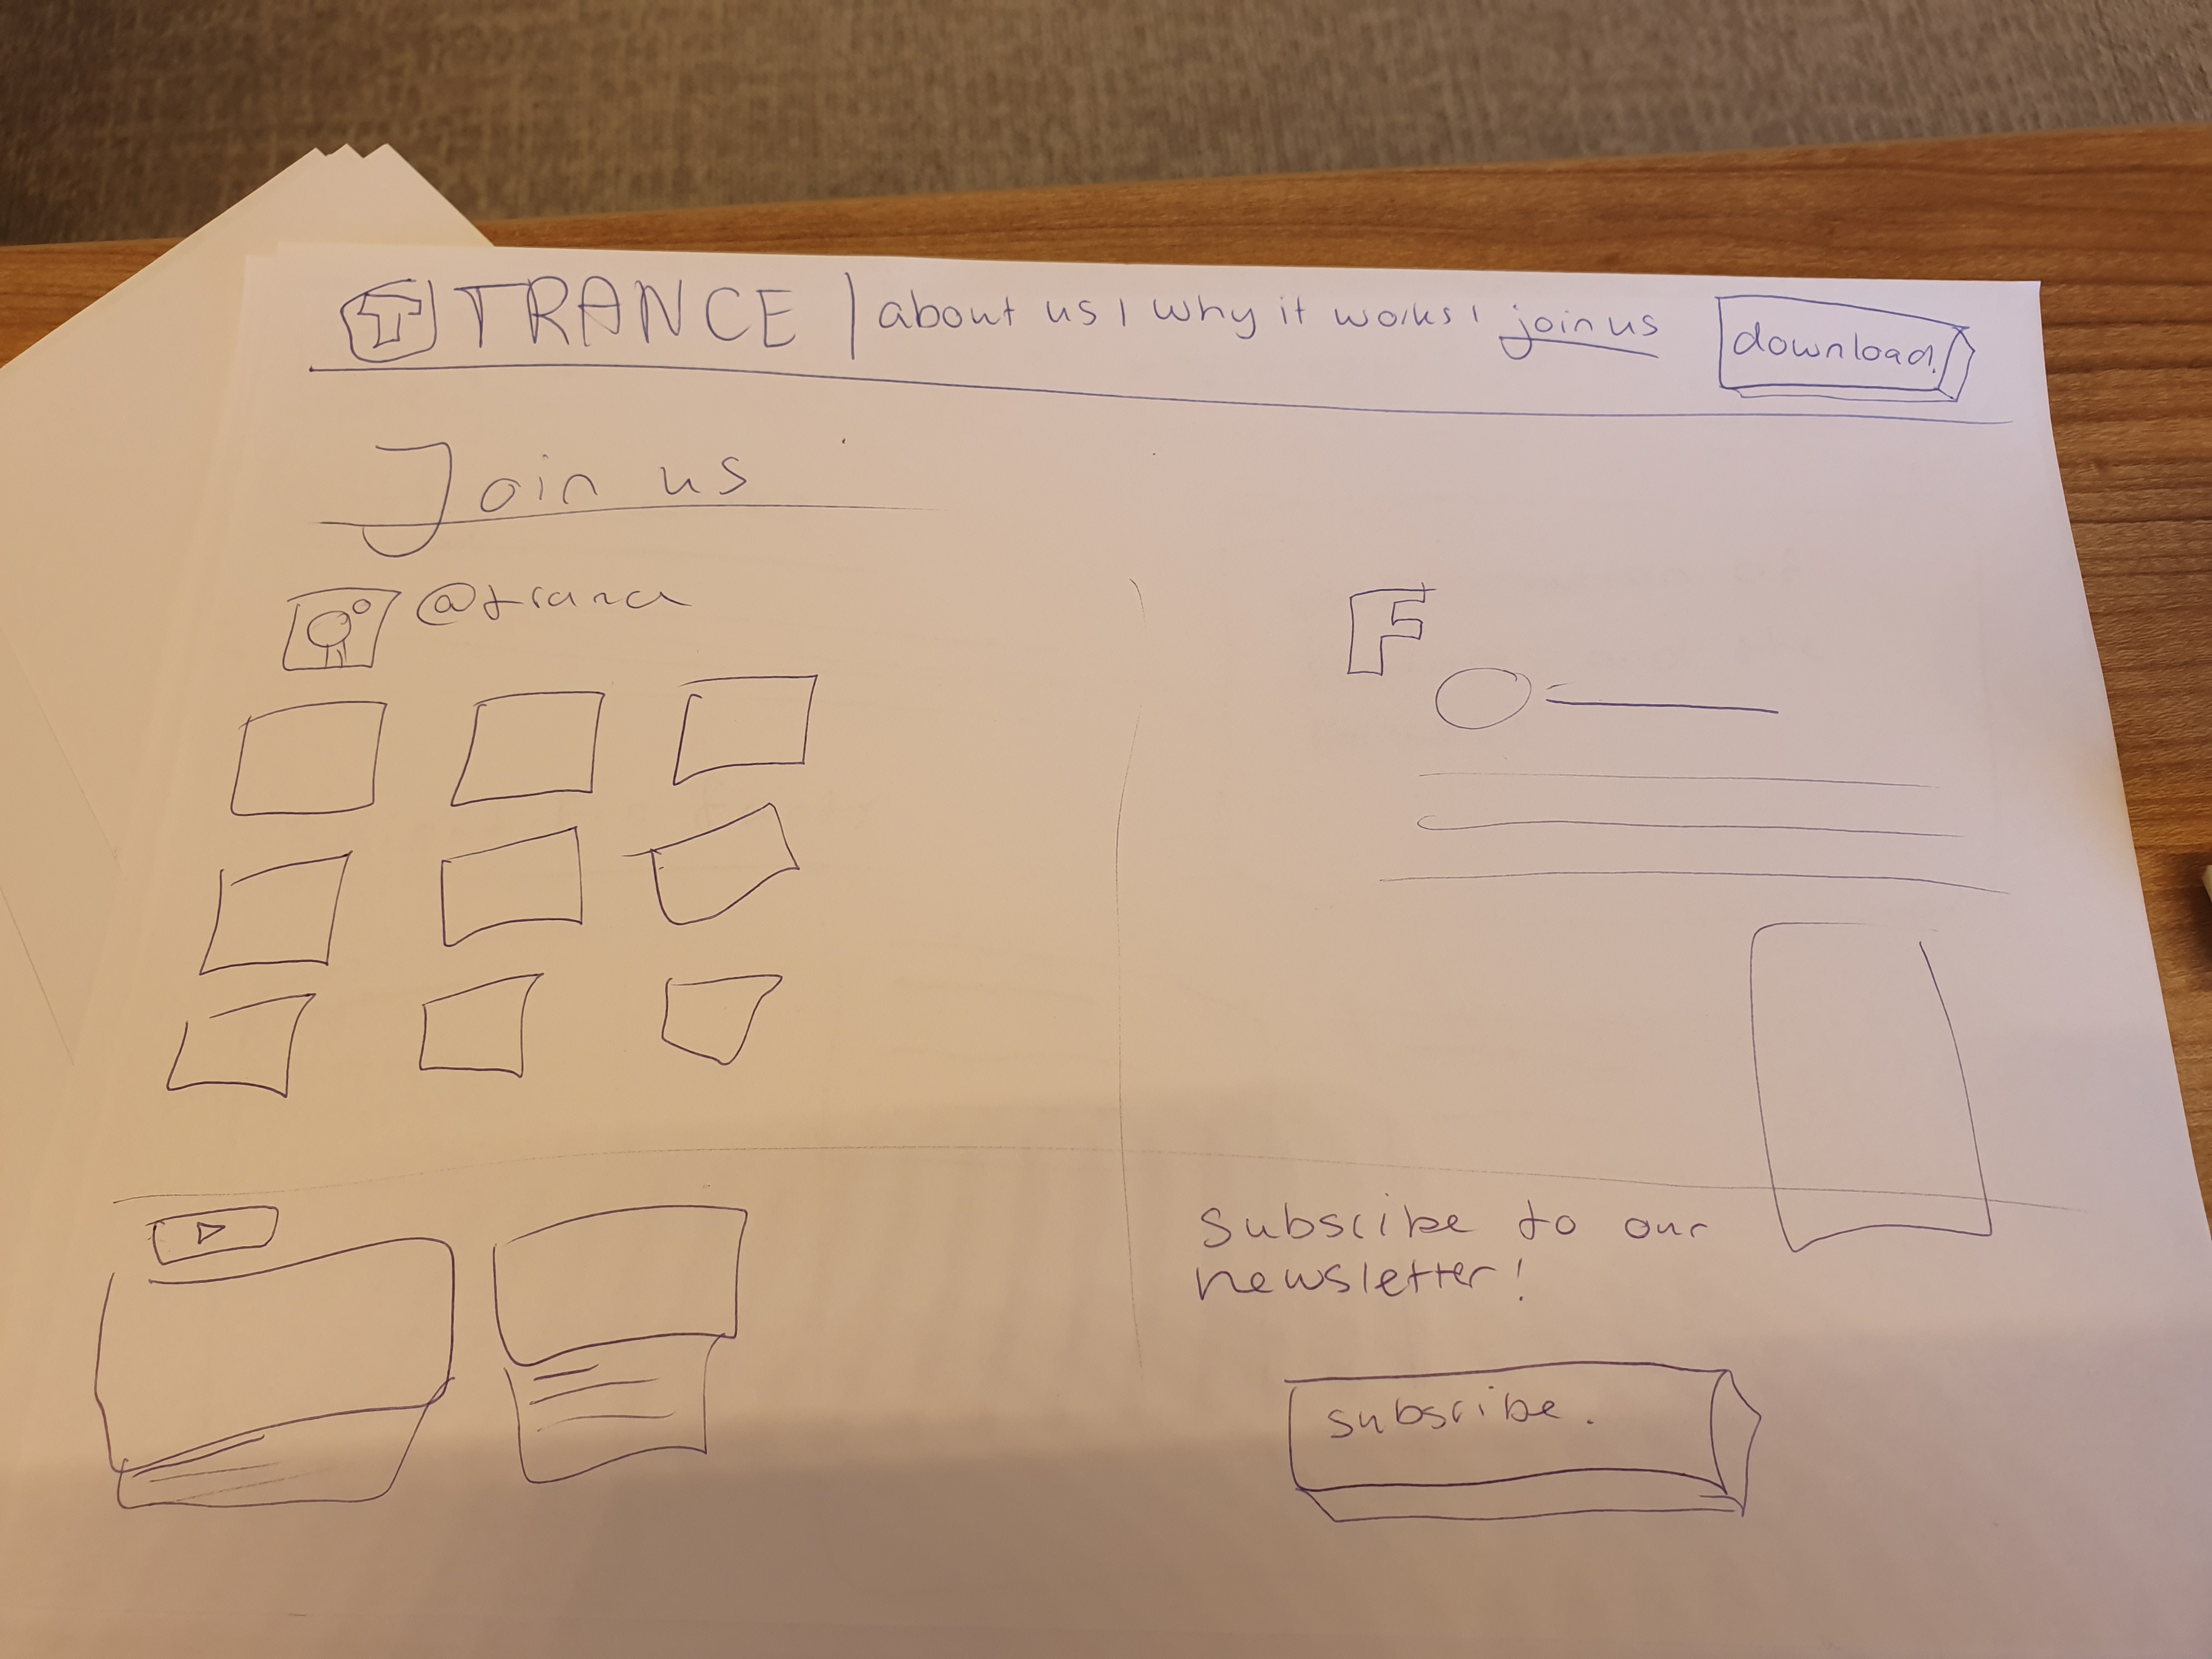 T TRANCE | about us | why it works | join us download!
Join us
@trance
F
Subscribe to our
newsletter!
subscribe.